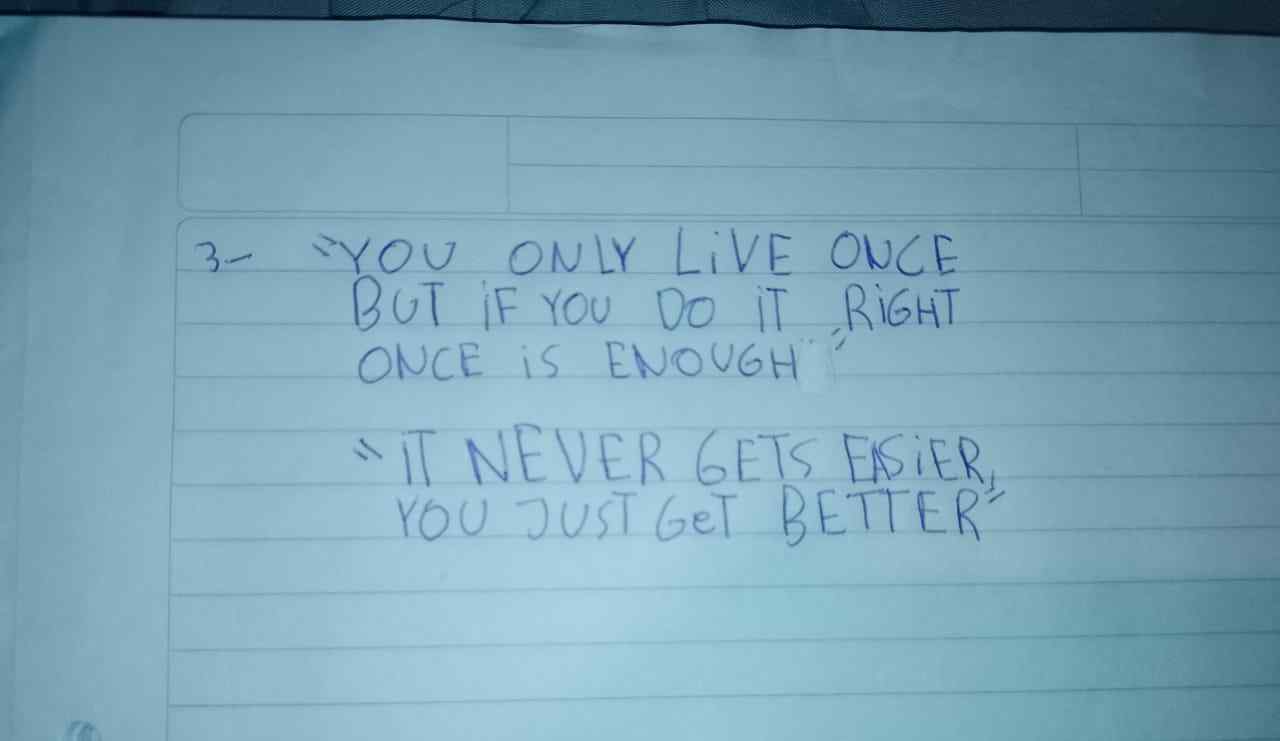 3- "YOU ONLY LiVE ONCE
BUT iF YOU DO iT RiGHT
ONCE iS ENOUGH"
"iT NEVER GETS EASiER,
YOU JUST GeT BETTER"